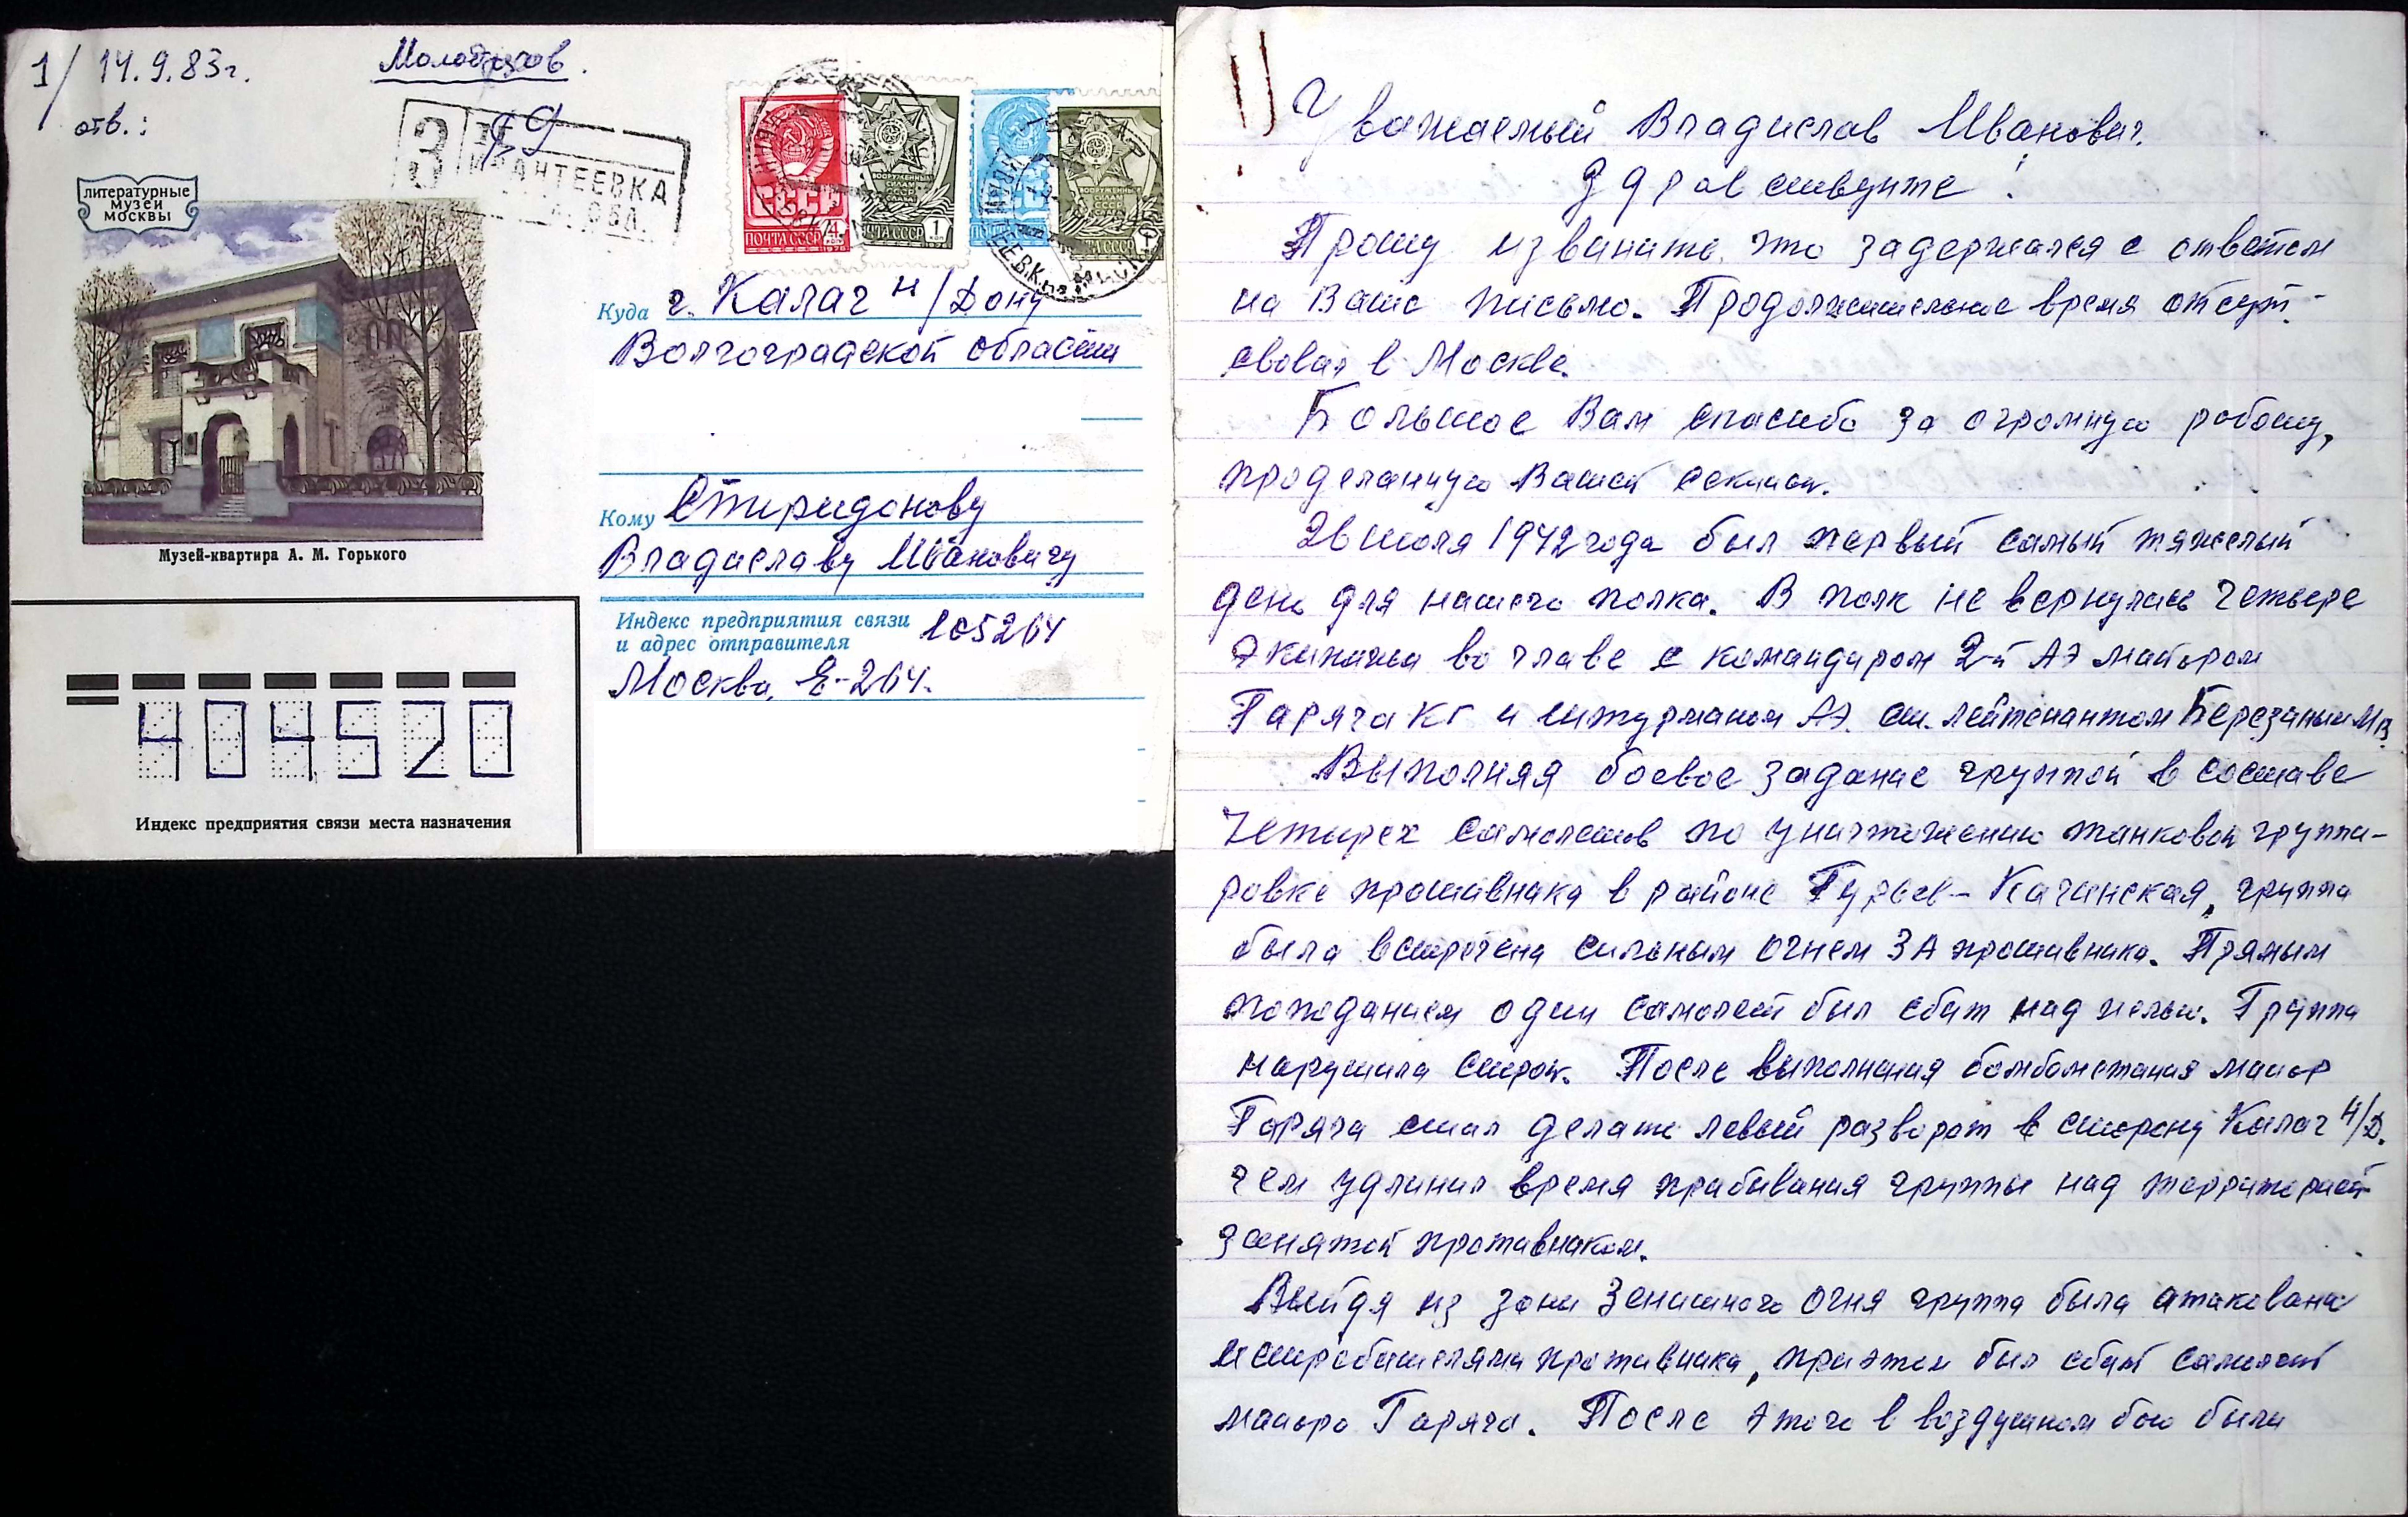 1/ 14.9.83г.
Молодчиков.
отв.:
З
ИВАНТЕЕВКА
ОБЛ.
литературные
музеи
москвы
Музей-квартира А. М. Горького
ПОЧТА СССР 4 коп
ВООРУЖЕННЫМ
СИЛАМ
СССР
ПОЧТА СССР 1 коп
Куда г. Калач н/Дону
Волгоградской области
Кому Спиридонову
Владиславу Ивановичу
Индекс предприятия связи
и адрес отправителя 105264
Москва, Е-264.
404520
Индекс предприятия связи места назначения
Уважаемый Владислав Иванович.
Здравствуйте!
Прошу извинить, что задержался с ответом
на Ваше письмо. Продолжительное время отсут-
свовал в Москве.
Большое Вам спасибо за огромную работу,
проделанную Вашей секцией.
26 июля 1942 года был первый самый тяжелый
день для нашего полка. В полк не вернулись четыре
экипажа во главе с командиром 2-й АЭ майором
Гаряча КГ и штурманом АЭ. ст. лейтенантом Березаным МВ
Выполняя боевое задание группой в составе
четырех самолетов по уничтожению танковой группи-
ровке противника в районе Гурьев - Качинская, группа
была встречена сильным огнем ЗА противника. Прямым
попаданием один самолет был сбит над целью. Группа
нарушила строй. После выполнения бомбометания майор
Гаряча стал делать левый разворот в сторону Калач Н/Д.
чем удлинил время прибывания группы над территорией
занятой противником.
Выйдя из зоны зенитного огня группа была атакована
истребителями противника, при этом был сбит самолет
майора Гаряча. После этого в воздушном бою были